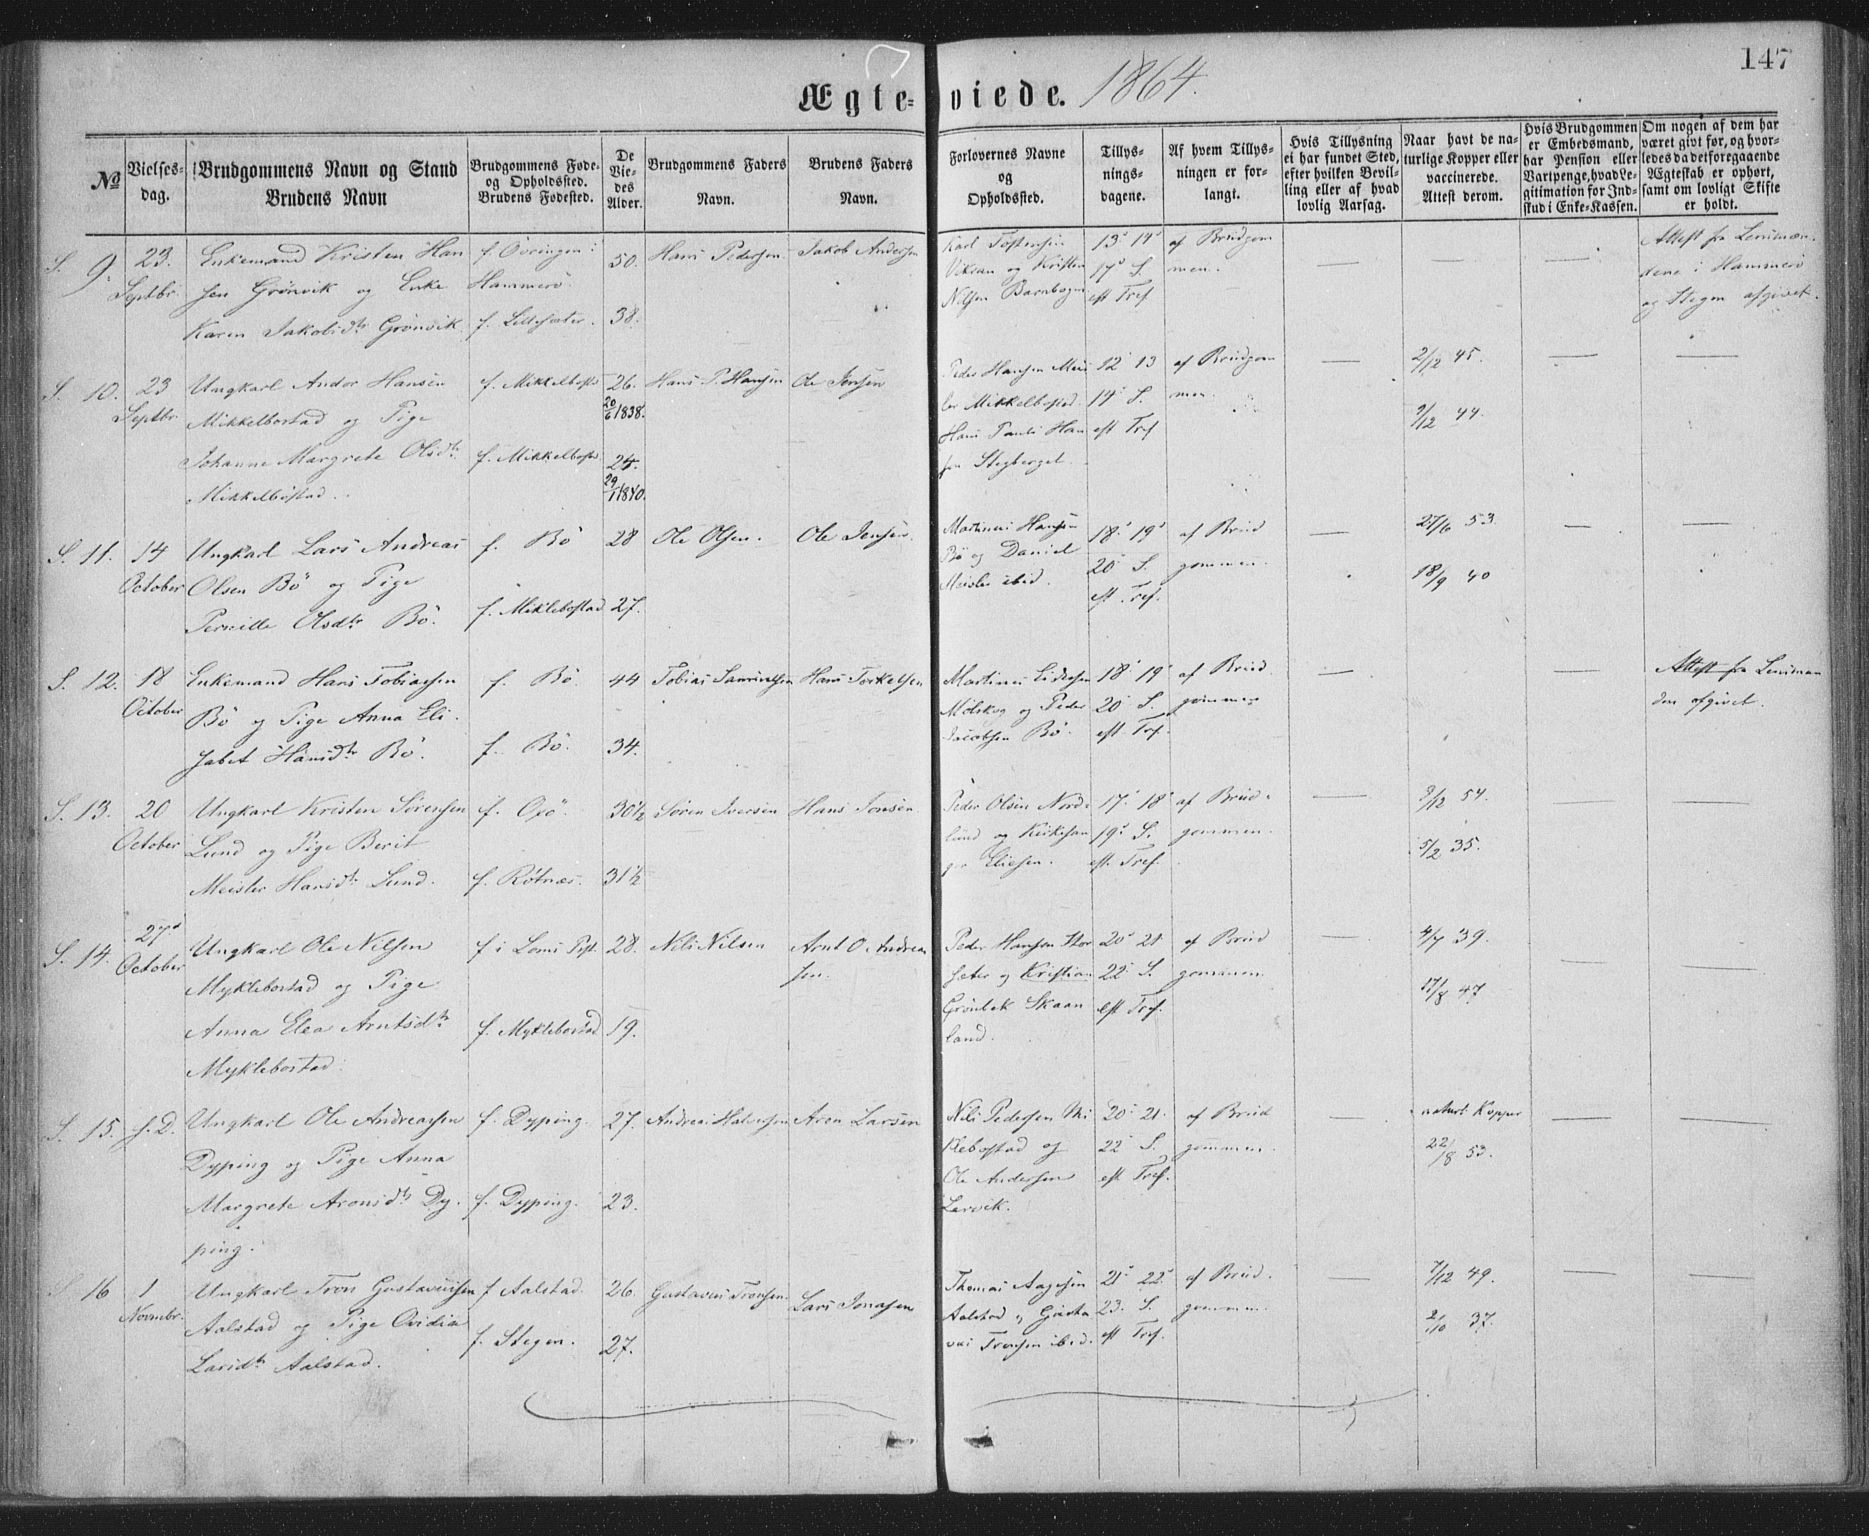 147
Ægte-viede. 1864.
No
Vielses-dag.
Brudgommens Navn og Stand
Brudens Navn
Brudgommens Føde- og Opholdssted.
Brudens Fødested.
De Viedes Alder.
Brudgommens Faders Navn.
Brudens Faders Navn.
Forlovernes Navne og Opholdssted.
Tillysningsdagene.
Af hvem Tillysningen er forlangt.
Hvis Tillysning ei har fundet Sted, efter hvilken Bevilling eller af hvad lovlig Aarsag.
Naar havt de naturlige Kopper eller vaccinerede. Attest derom.
Hvis Brudgommen er Embedsmand, har Pension eller Vartpenge, hvad Legitimation for Indskud i Enke-Kassen.
Om nogen af dem har været givt før, og hvorledes da det foregaaende Ægteskab er ophørt, samt om lovligt Skifte er holdt.
S. 9. 23. Septbr.
Enkemand Kristen Han
sen Grönvik og Enke
Karen Jakobsdtr Grönvik
f. Övringen i
Hammerö.
f. Lillesæter.
50.
38.
Hans Pedersen.
Jakob Andersen
Karl Tostensen
Viksan og Kristen
Nilsen Barnbogen
13d 14d
17d S.
eft Tref
af Brudgom
men.
Attest fra Lensmæn
dene i Hammerö
og Stegen afgivet.
S. 10. 23 Septbr
Ungkarl Andor Hansen
Mikkelbostad og Pige
Johanne Margrete Olsdtr
Mikkelbostad.
f. Mikkelbostd
f. Mikkelbostd
26.
20/6 1838.
24.
29/11 1840.
Hans P. Hansen
Ole Jensen
Peder Hansen Meis
ler Mikkelbostad.
Hans Pauli Han
sen Stegberget.
12 13
14 S.
eft Tref
af Brudgom
men.
2/12 45.
9/12 44.
S. 11. 14 October
Ungkarl Lars Andreas
Olsen Bö og Pige
Pernille Olsdtr Bö.
f. Bö
f. Miklebostad
28
27.
Ole Olsen.
Ole Jensen.
Martinus Hansen
Bö og Daniel
Meisler ibid.
18d 19d
20 S.
eft. Tref.
af Brud
gommen.
27/6 53.
18/9 40
S. 12. 18 October
Enkemand Hans Tobiassen
Bö og Pige Anna Eli
sabet Hansdtr Bö.
f. Bö.
f. Bö.
44
34.
Tobias Samuelsen
Hans Torkelsen
Martinus Eidissen
Molskog og Peder
Jacobsen Bö.
18d 19d
20 S.
eft Tref.
af Brud
gommen
Attest fra Lensman
den afgivet.
S. 13. 20 October
Ungkarl Kristen Sörensen
Lund og Pige Berit
Meisler Hansdtr Lund.
f. Oxö.
f. Rötnes.
30½
31½
Sören Iversen
Hans Jonsen
Peder Olsen Nord-
lund og Kirkesan
ger Eliesen.
17d 18d
19d S.
eft. Tref.
af Brud-
gommen.
9/12 54.
5/2 35.
S. 14. 27d October
Ungkarl Ole Nilsen
Myklebostad og Pige
Anna Elea Arntsdtr
Myklebostad.
f. i Loms Pgt.
f. Myklebostad
28.
19.
Nils Nilsen
Arnt O. Andrea
sen.
Peder Hansen Stor
seter og Kristian
Grönbek Skaan
land.
20d 21
22d S.
eft Tref.
af Brud
gommen
4/7 39.
17/8 47
S. 15. s. D.
Ungkarl Ole Andreassen
Dyping og Pige Anna
Margrete Aronsdtr Dy-
ping.
f. Dyping.
f. Dyping.
27.
23.
Andreas Halvorsen
Aron Larsen
Nils Pedersen Mi
klebostad og
Ole Andersen
Larvik.
20d 21.
22 S.
eft Tref.
af Brud
gommen.
naturl. Kopper
22/8 53.
S. 16 1 Novmbr.
Ungkarl Tron Gustavussen
Aalstad og Pige Ovidia
Larsdtr Aalstad.
f Aalstad.
f. Stegen.
26.
27.
Gustavus Tronsen.
Lars Jonasen
Thomas Aagesen
Aalstad og Gusta
vus Tronsen ibid.
21d 22d
23. S.
eft Tref.
af Brud.
gommen
7/12 49.
2/10 37.